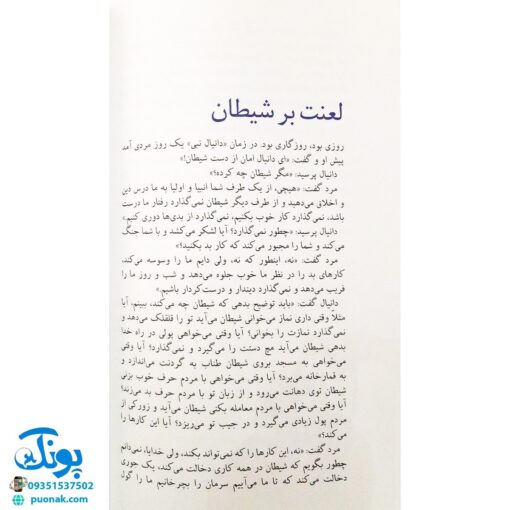 لعنت بر شیطان
روزی بود، روزگاری بود. در زمان «دانیال نبی» یک روز مردی آمد
پیش او و گفت: «ای دانیال امان از دست شیطان!»
دانیال پرسید: «مگر شیطان چه کرده؟»
مرد گفت: «هیچی، از یک طرف شما انبیا و اولیا به ما درس دین
و اخلاق می‌دهید و از طرف دیگر شیطان نمی‌گذارد رفتار ما درست
باشد، نمی‌گذارد کار خوب بکنیم، نمی‌گذارد از بدی‌ها دوری کنیم.»
دانیال پرسید: «چطور نمی‌گذارد؟ آیا لشکر می‌کشد و با شما جنگ
می‌کند و شما را مجبور می‌کند که کار بد بکنید؟»
مرد گفت: «نه، اینطور که نه، ولی دایم ما را وسوسه می‌کند،
کارهای بد را در نظر ما خوب جلوه می‌دهد و شب و روز ما را
فریب می‌دهد و نمی‌گذارد دیندار و درست‌کردار باشیم.»
دانیال گفت: «باید توضیح بدهی که شیطان چه می‌کند، ببینم، آیا
مثلاً وقتی داری نماز می‌خوانی شیطان می‌آید تو را قلقلک می‌دهد و
نمی‌گذارد نمازت را بخوانی؟ آیا وقتی می‌خواهی پولی در راه خدا
بدهی شیطان می‌آید مچ دستت را می‌گیرد و نمی‌گذارد؟ آیا وقتی
می‌خواهی به مسجد بروی شیطان طناب به گردنت می‌اندازد و
به قمارخانه می‌برد؟ آیا وقتی می‌خواهی با مردم حرف خوب بزنی
شیطان توی دهانت می‌رود و از زبان تو با مردم حرف بد می‌زند؟
آیا وقتی می‌خواهی با مردم معامله بکنی شیطان می‌آید و زورکی از
مردم پول زیادی می‌گیرد و در جیب تو می‌ریزد؟ آیا این کارها را
می‌کند؟»
مرد گفت: «نه، این کارها را که نمی‌تواند بکند، ولی خدایا، نمی‌دانم
چطور بگویم که شیطان در همه کاری دخالت می‌کند، یک جوری
دخالت می‌کند که تا ما می‌آییم سرمان را بچرخانیم ما را گول
پونک
09351537502
puonak.com